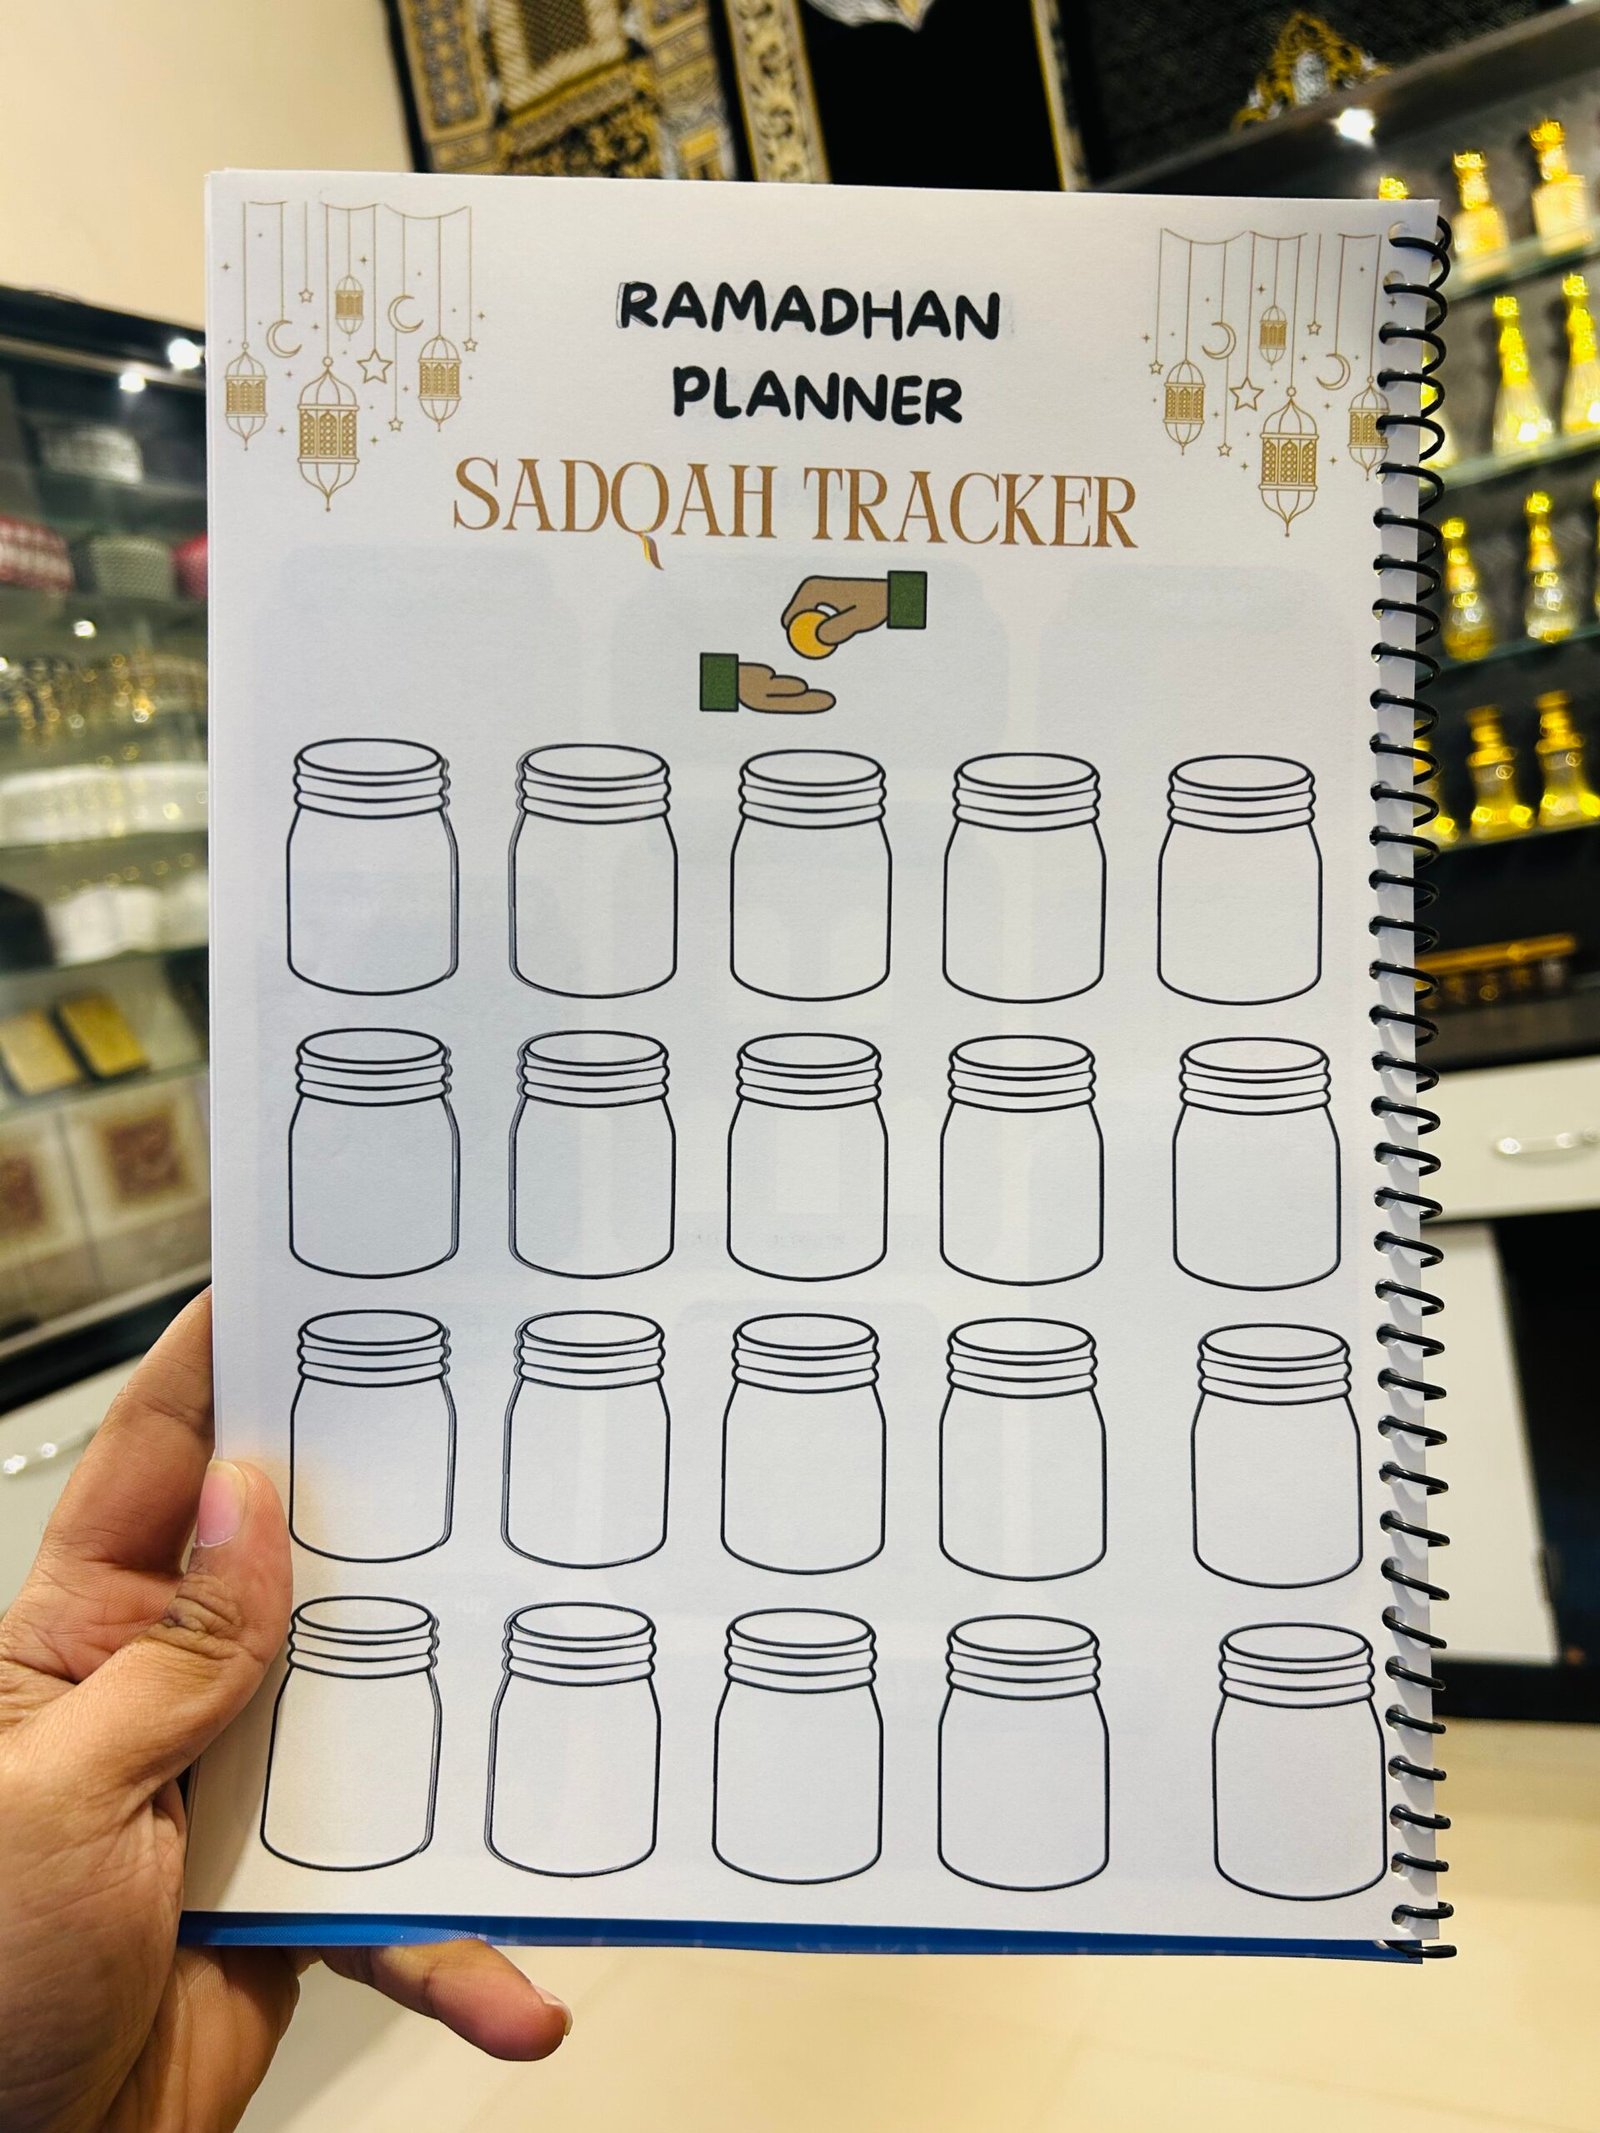 RAMADHAN
PLANNER
SADQAH TRACKER